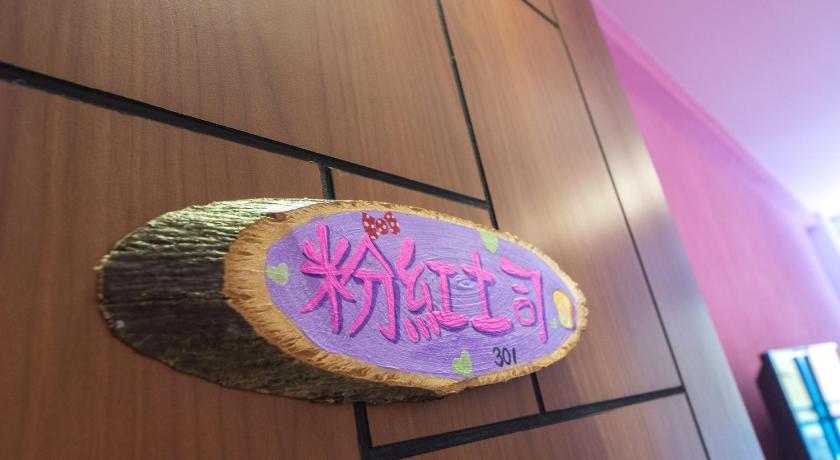 粉紅吐司
301